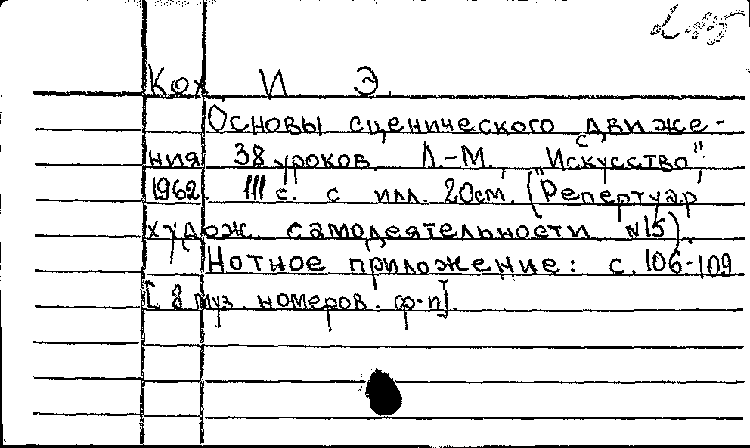 Кох И. Э.
Основы сценического движе-
ния 38 уроков. Л.-М., "Искусство",
1962. 111 с. с илл. 20см. (Репертуар
худож. самодеятельности №15).
Нотное приложение: с. 106-109
[8 муз. номеров. ф-п].